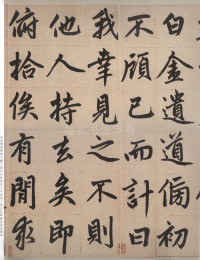 白金遺道傍初
不顧已而計曰
我幸見之不則
他人持去矣即
俯拾俟有間求